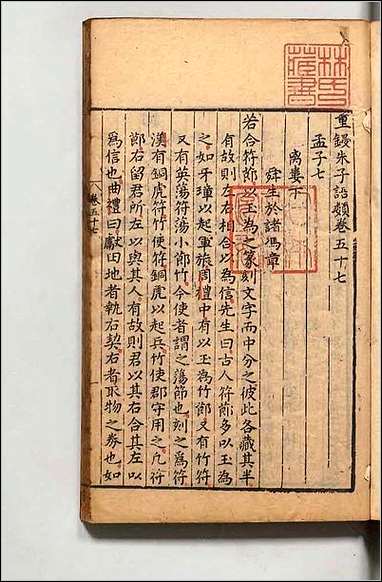 重鋟朱子語類卷五十七
孟子七
離婁下
舜生於諸馮章
若合符節以玉為之篆刻文字而中分之彼此各藏其半
有故則左右相合以為信先生曰古人符節多以玉為
之如牙璋以起軍旅周禮中有以玉為竹節又有竹符
又有英蕩符蕩小節竹今使者謂之蕩節也刻之為符
漢有銅虎符竹使符銅虎以起兵竹使郡守用之凡符
節右留君所左以與其人有故則君以其右合其左以
為信也曲禮曰獻田地者執右契右者取物之券也如
卷五十七
林氏藏書